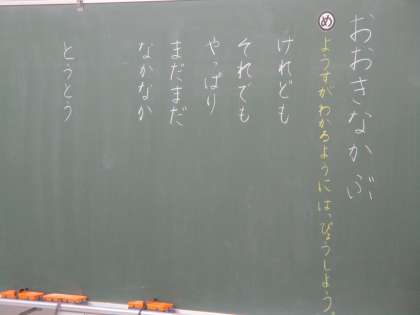 おおきなかぶ
め ようすがわかるようにはっぴょうしよう。
けれども
それでも
やっぱり
まだまだ
なかなか
とうとう